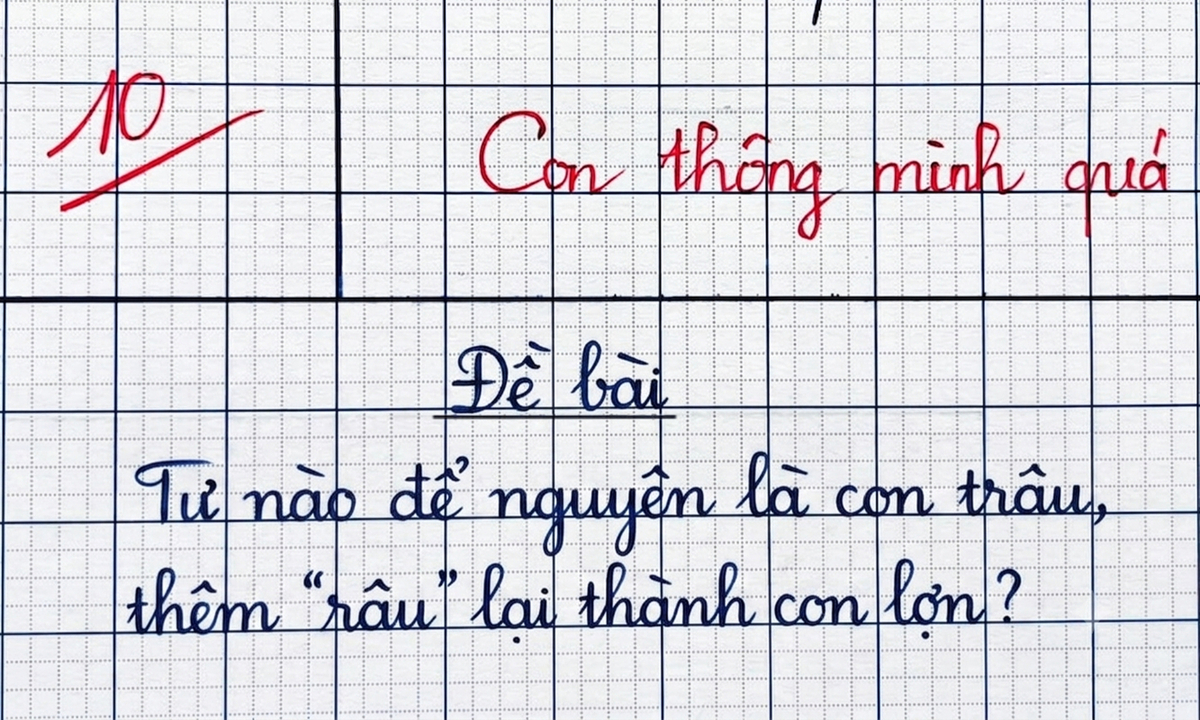 10
Con thông minh quá
Đề bài
Từ nào để nguyên là con trâu,
thêm “râu” lại thành con lợn?